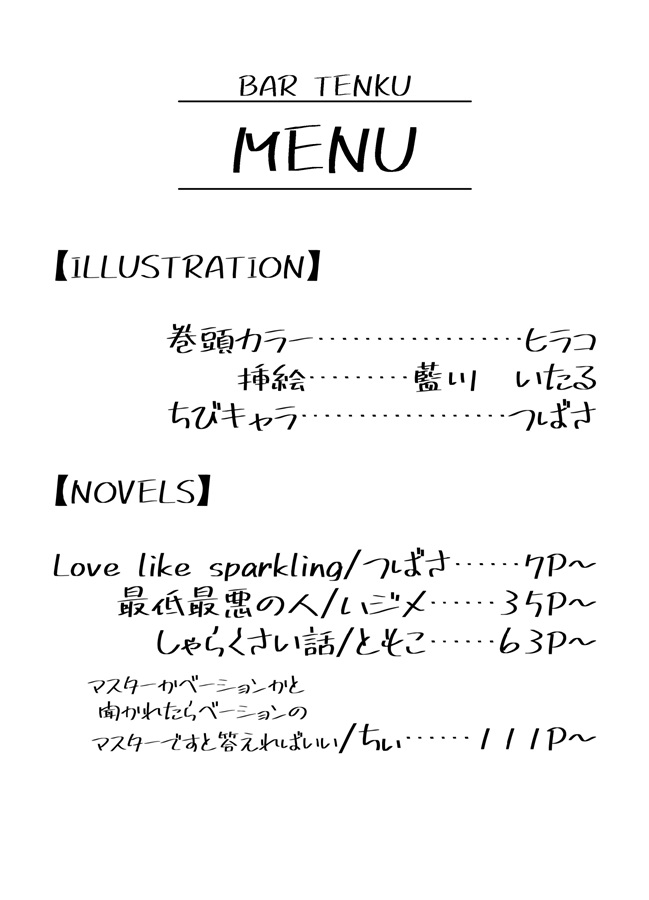 BAR TENKU
MENU
【ILLUSTRATION】
巻頭カラー………………ヒラコ
挿絵………藍川　いたる
ちびキャラ………………つばさ
【NOVELS】
Love like sparkling/つばさ……7P～
最低最悪の人/ハジメ……35P～
しゃらくさい話/ともこ……63P～
マスターかベーションかと
聞かれたらベーションの
マスターですと答えればいい/ちぃ……111P～